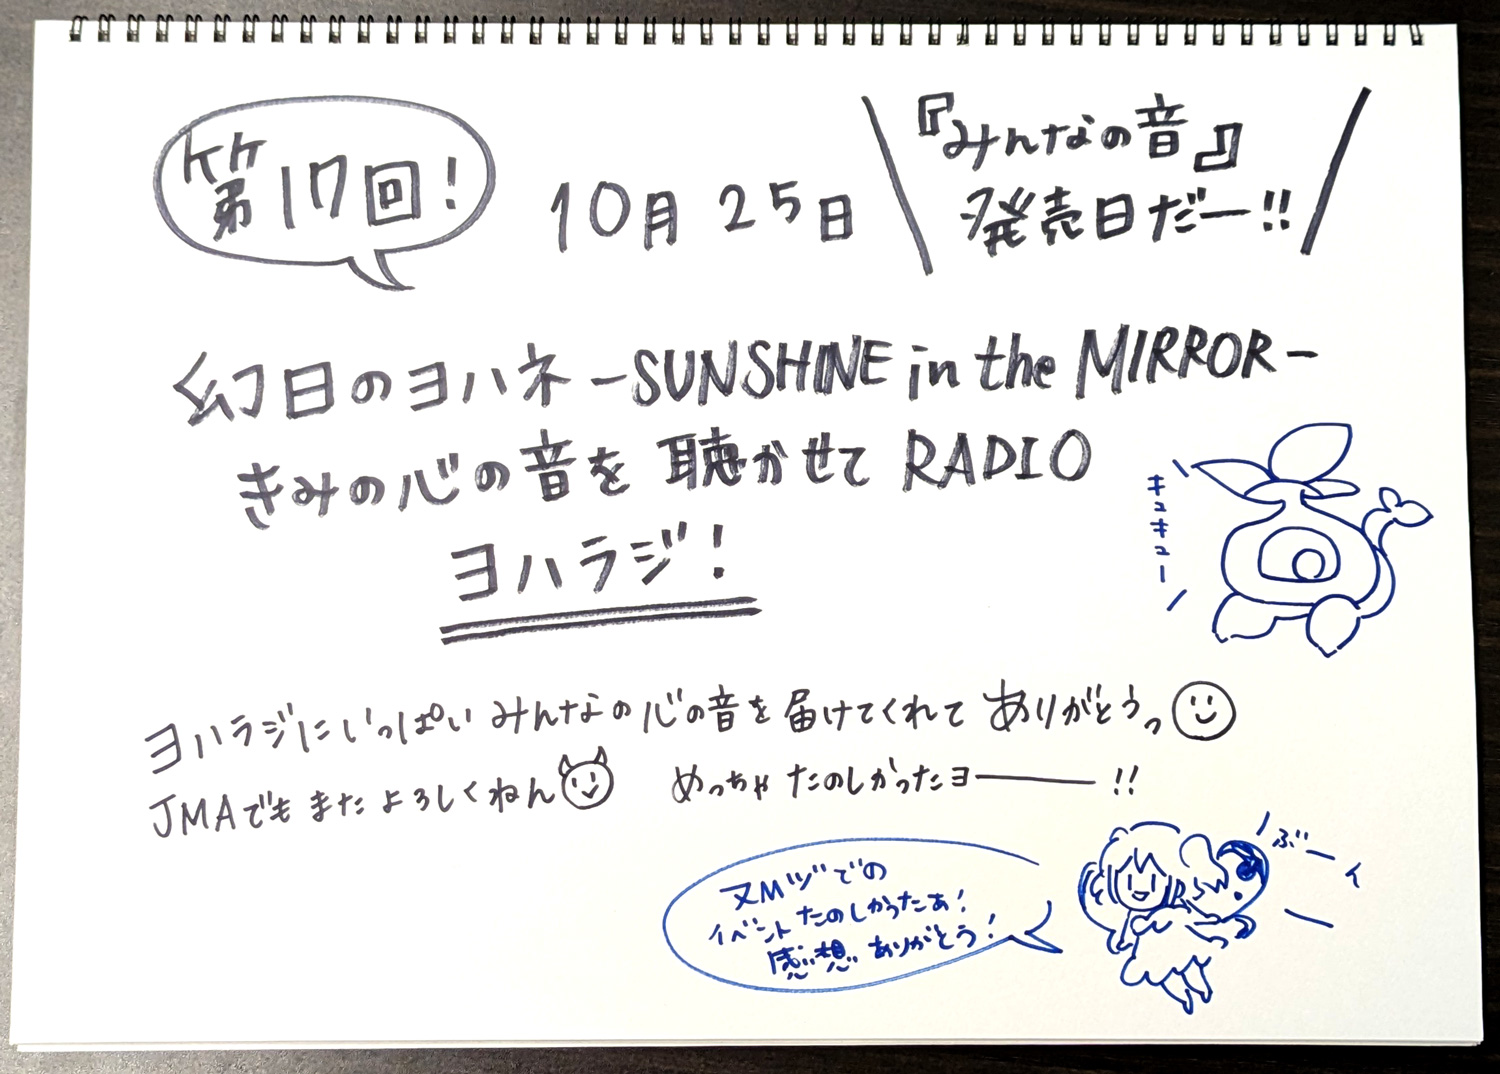 第17回!
10月25日
『みんなの音』
発売日だー!!
幻日のヨハネ -SUNSHINE in the MIRROR-
きみの心の音を聴かせて RADIO
ヨハラジ!
キュキュー
ヨハラジにいっぱいみんなの心の音を届けてくれてありがとうっ
JMAでもまたよろしくねん
めっちゃたのしかったヨー!!
ヌMヅでの
イベントたのしかったぁ!
感想ありがとう!
ぶーん